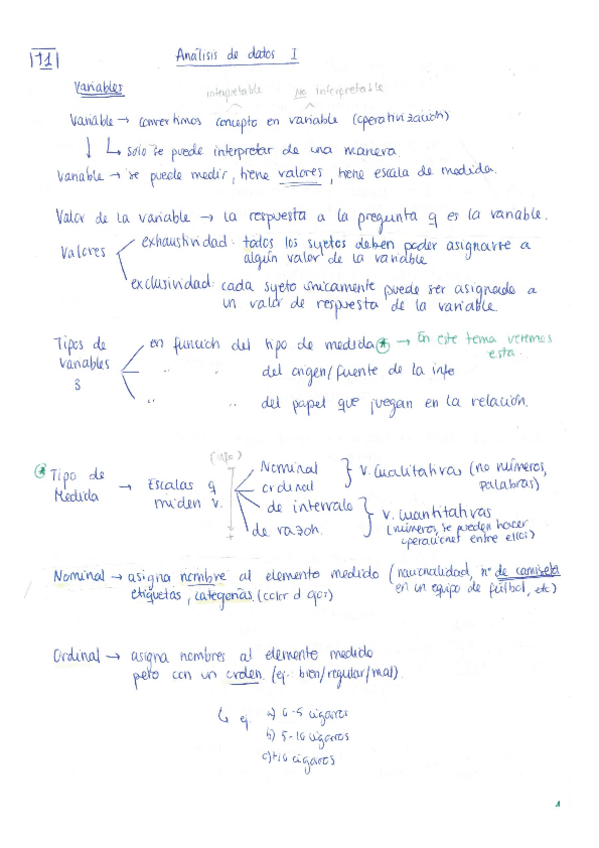 T1
Análisis de datos I
Variables
interpretable No interpretable
Variable → convertimos concepto en variable (operativización)
↓ ↳ solo se puede interpretar de una manera.
Variable → se puede medir, tiene valores, tiene escala de medida.
Valor de la variable → la respuesta a la pregunta q es la variable.
Valores
exhaustividad: todos los sujetos deben poder asignarse a
algún valor de la variable
exclusividad: cada sujeto únicamente puede ser asignado a
un valor de respuesta de la variable.
Tipos de variables 3
en función del tipo de medida * → En este tema veremos esta.
" " del origen/fuente de la info
" " del papel que juegan en la relación.
* Tipo de Medida → Escalas q miden v.
(info)
- +
Nominal
ordinal
} v. cualitativas (no números, palabras)
de intervalo
de razón.
} v. cuantitativas
(números, se pueden hacer
operaciones entre ellos)
Nominal → asigna nombre al elemento medido (nacionalidad, nº de camiseta
etiquetas, categorías. (color d ojos) en un equipo de fútbol, etc)
Ordinal → asigna nombres al elemento medido
pero con un orden. (ej: bien/regular/mal).
↳ ej. a) 0-5 cigarros
b) 5-10 cigarros
c) +10 cigarros
1